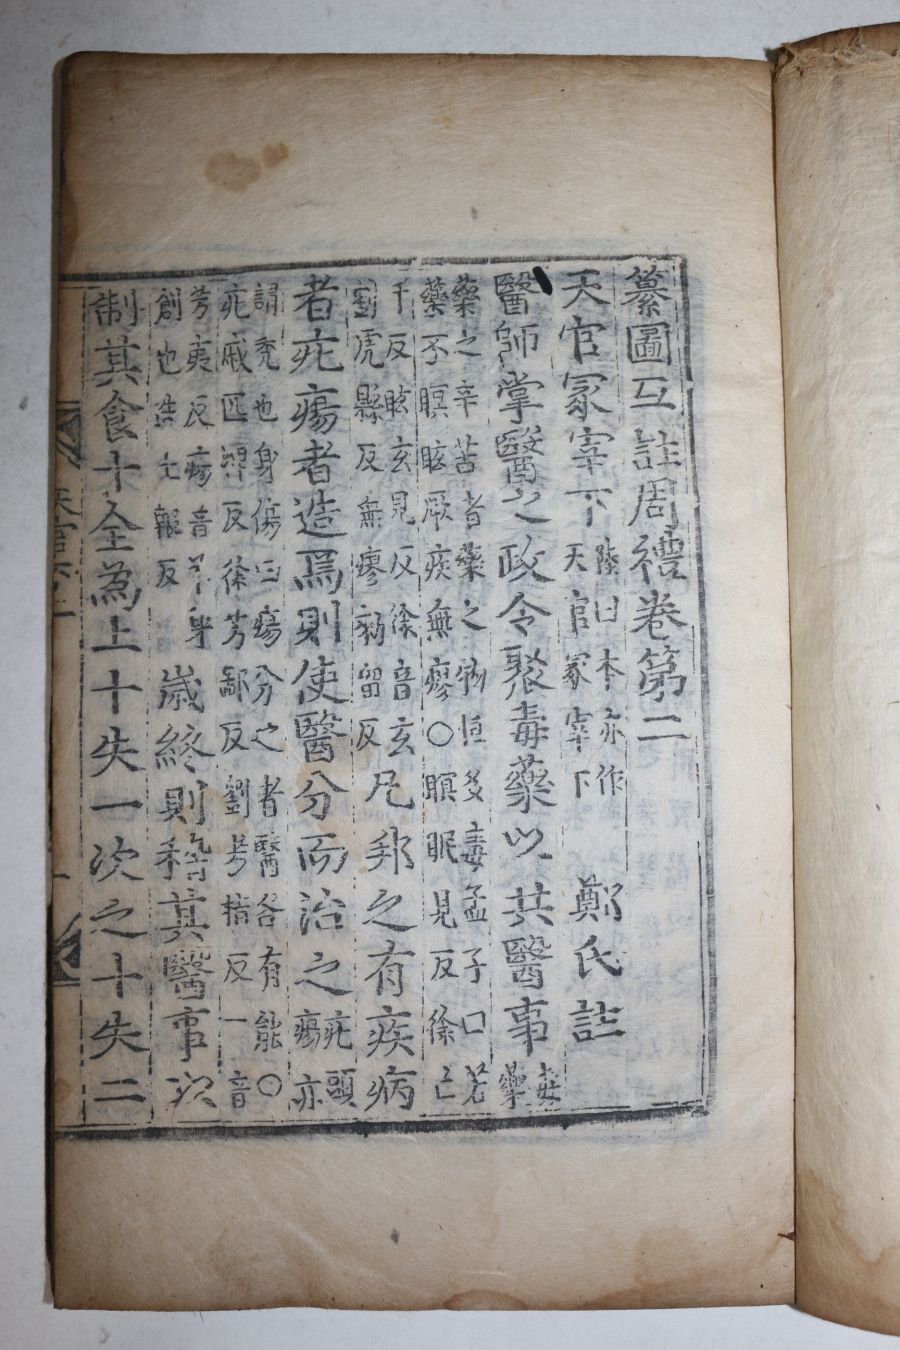 纂圖互註周禮卷第二
天官冢宰下陸曰本亦作天官冢宰下鄭氏註
醫師掌醫之政令聚毒藥以共醫事毒藥
藥之辛苦者藥之物恒多毒孟子曰若
藥不瞑眩厥疾無瘳〇瞑眠見反徐亡
千反眩玄見反徐音玄
劉虎縣反無瘳勑留反凡邦之有疾病
者疕瘍者造焉則使醫分而治之疕頭瘍亦
謂禿也身傷曰瘍分之者醫各有能〇
疕戚匹婢反徐芳鄙反劉芳指反一音
芳夷反瘍音羊身
創也造七報反歲終則稽其醫事以
制其食十全為上十失一次之十失二